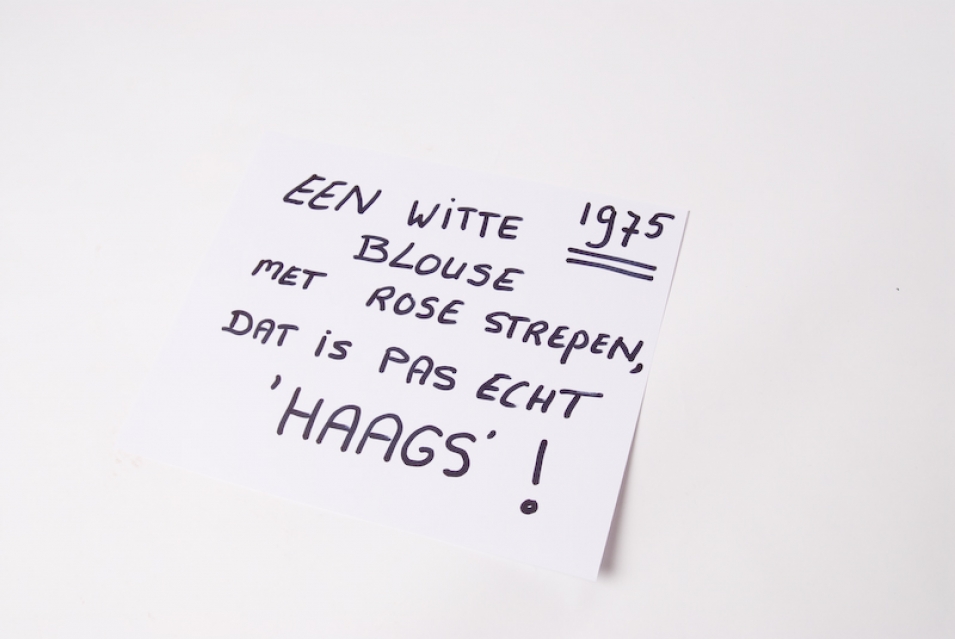 EEN WITTE 1975
BLOUSE
MET ROSE STREPEN,
DAT IS PAS ECHT
'HAAGS' !